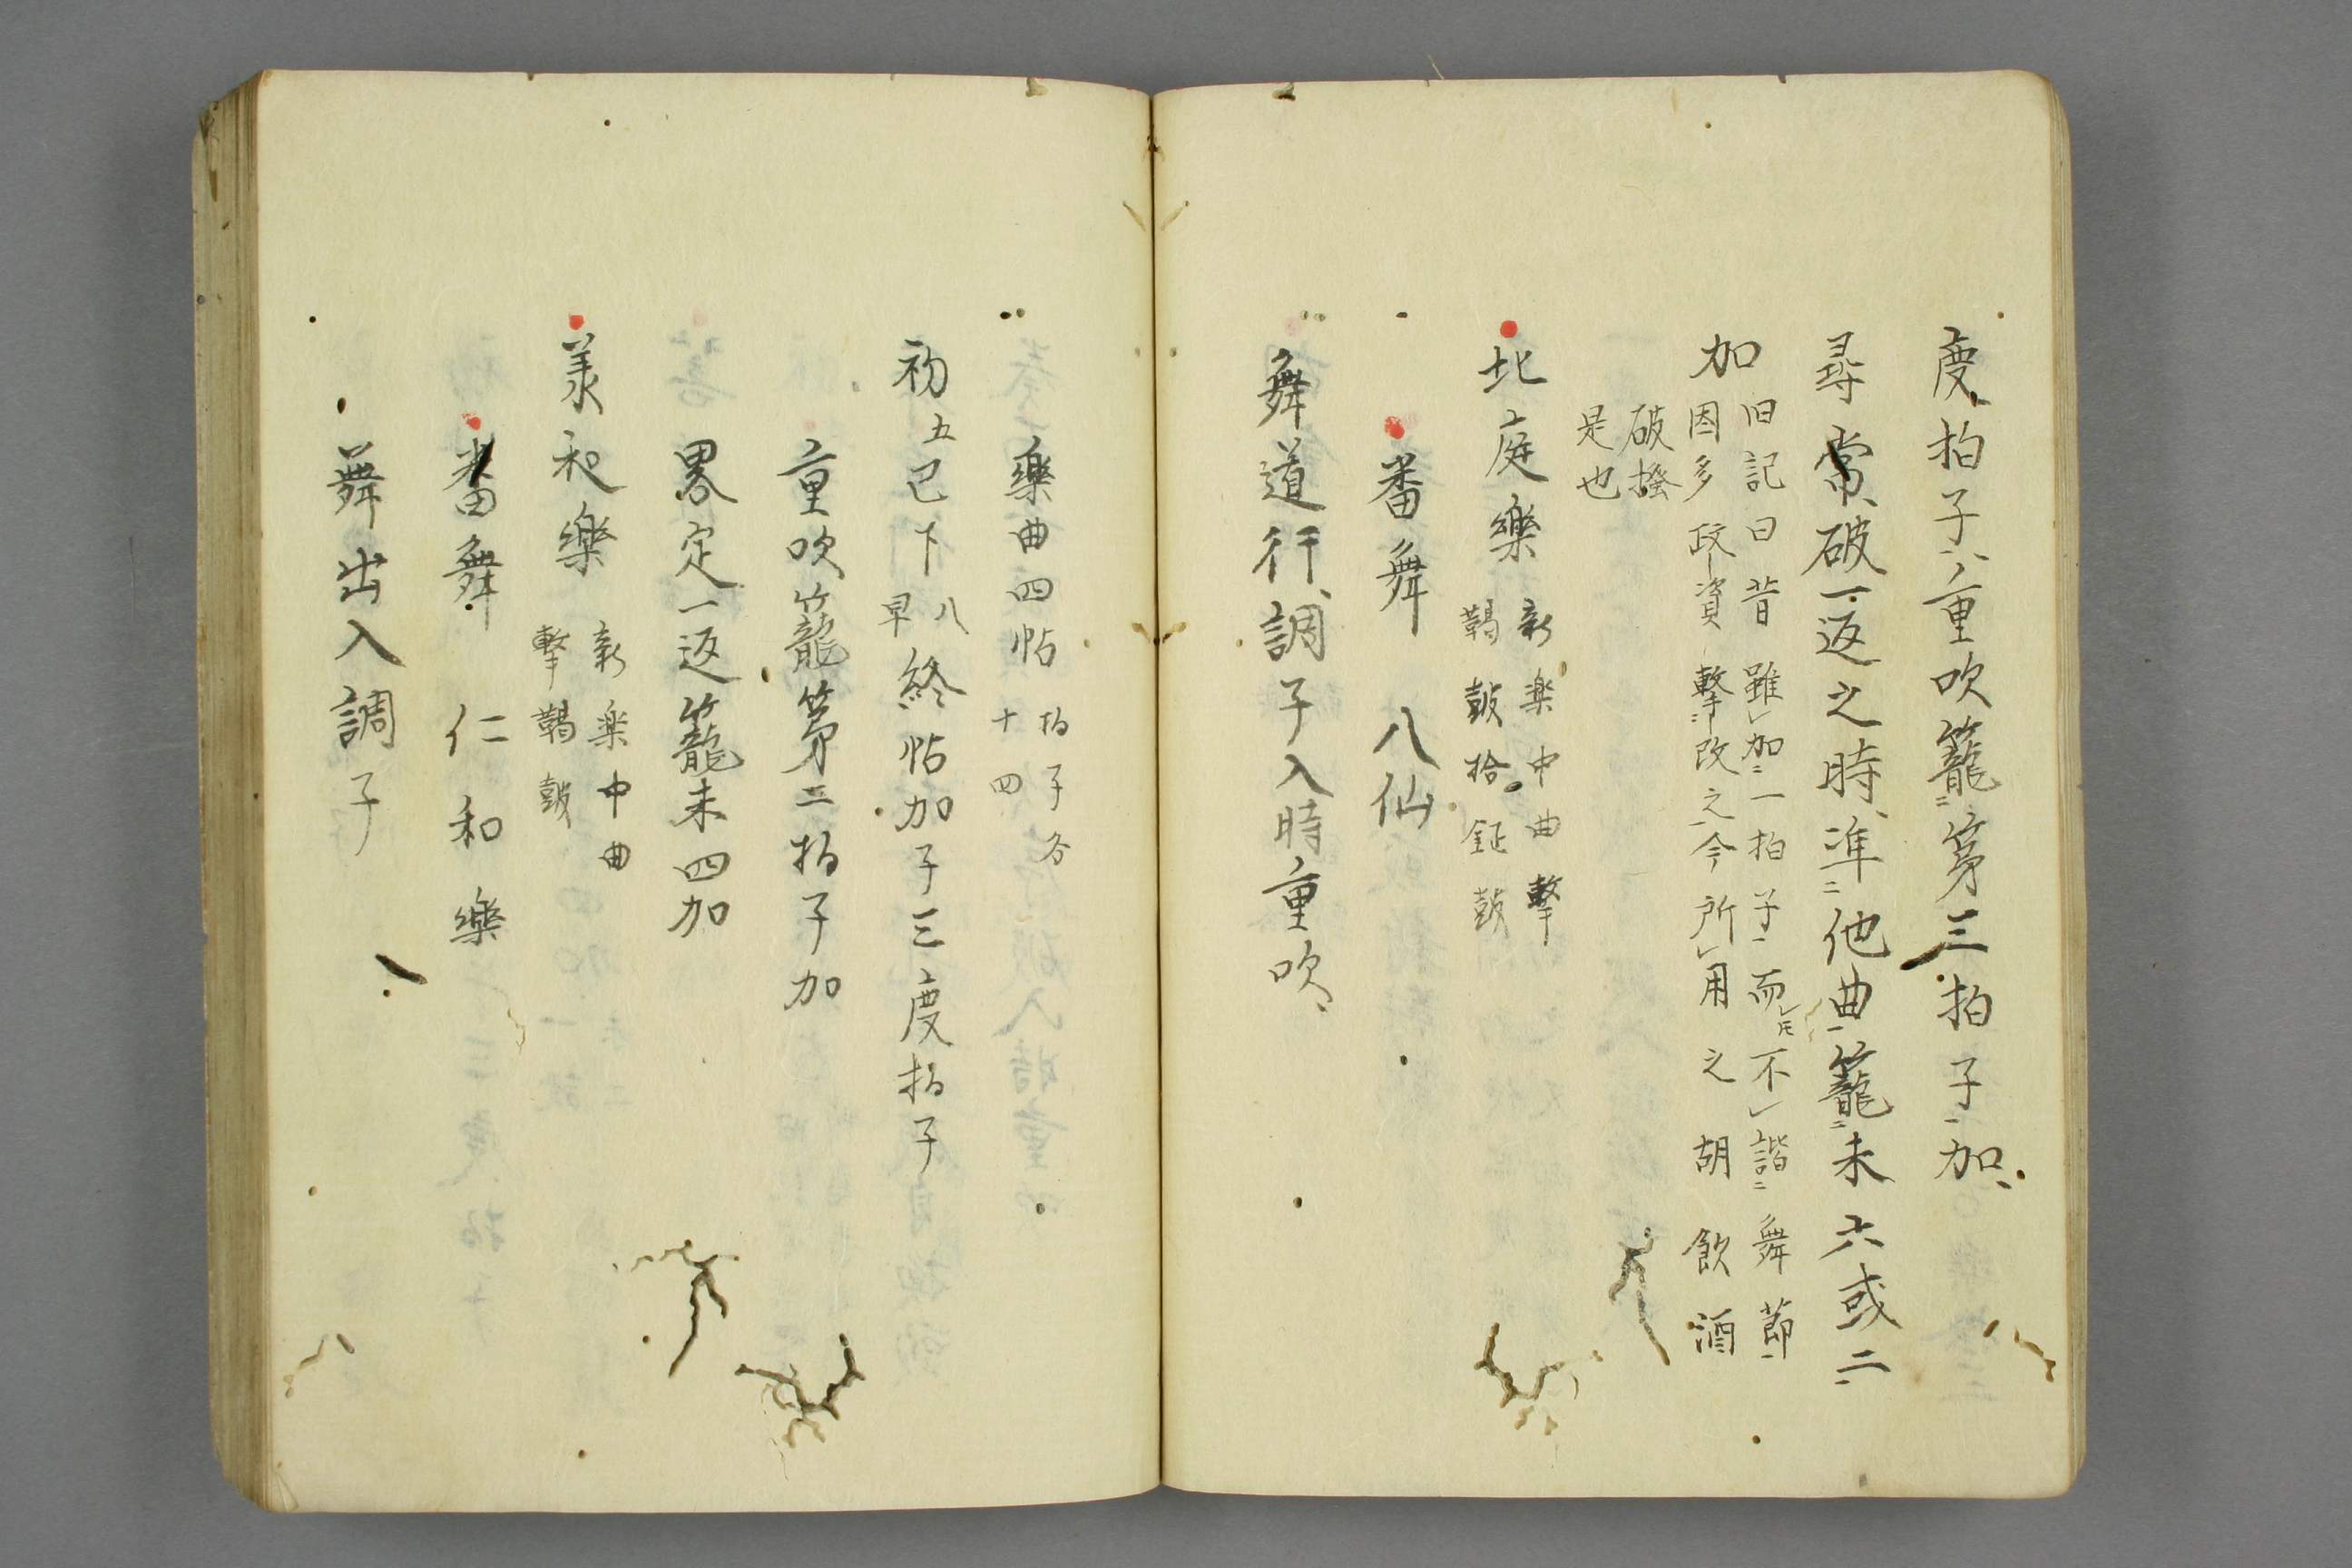 度拍子、重吹籠ニ、第三拍子ニ加、
尋常、破一返之時、準ニ他曲一籠ニ未六或二
加 旧記曰昔雖レ加ニ一拍子一而不レ諧ニ舞節一
因多政資撃改之今所レ用之胡飲酒
破撥
是也
北庭樂 新楽中曲撃
鞨鼓拾鉦鼓
番舞 八仙
舞道行、調子入時重吹、
樂曲四帖 拍子各
十四
初五已下八
早終帖加子三度拍子
重吹籠第二拍子加
畧定一返籠未四加
美和樂 新楽中曲
撃鞨鼓
番舞 仁和樂
舞出入調子